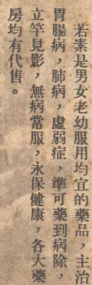 若素是男女老幼服用均宜的藥品，主治
胃腸病，肺病，虛弱症，準可藥到病除，
立竿見影，無病常服，永保健康，各大藥
房均有代售。